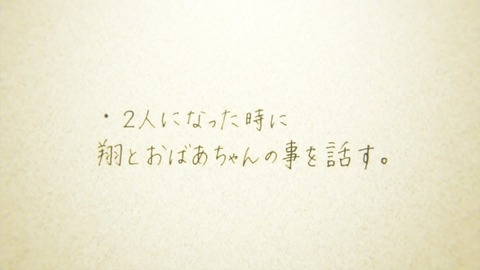 ・2人になった時に
翔とおばあちゃんの事を話す。